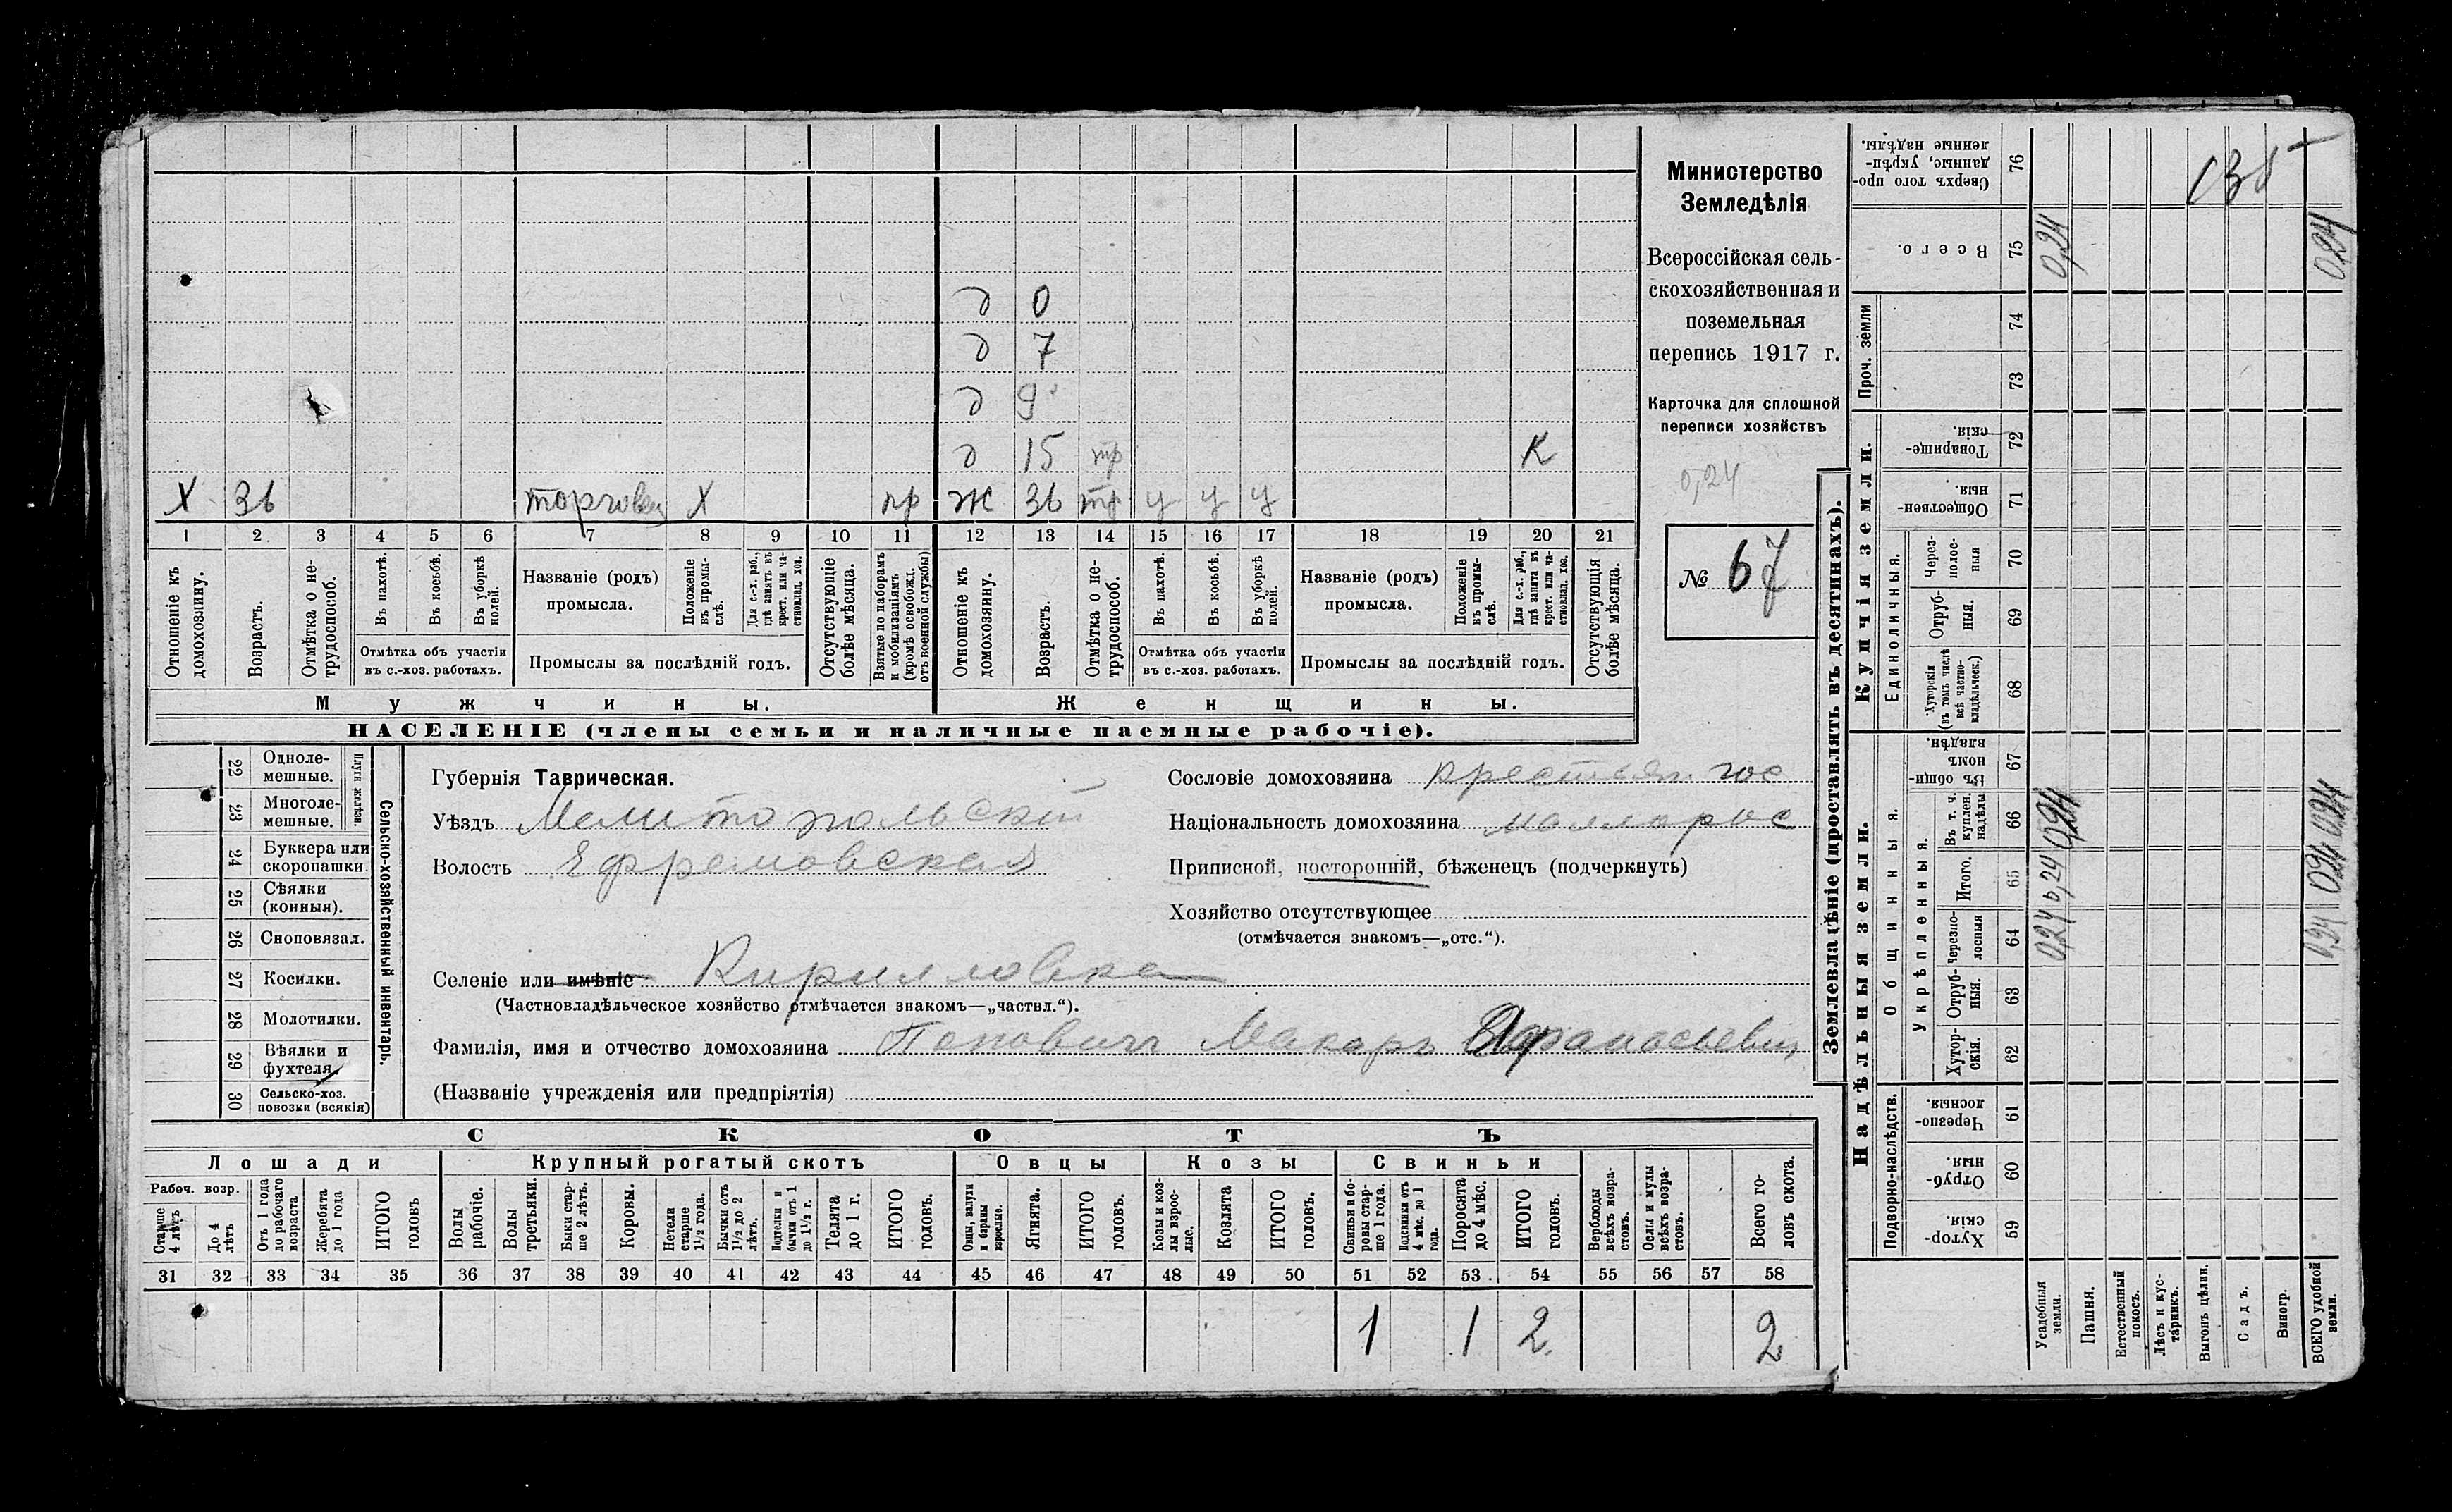 д 0
д 7
д 9
д 15 тр К
Х 36 торговец Х пр Ж 36 тр у у у
1 2 3 4 5 6 7 8 9 10 11 12 13 14 15 16 17 18 19 20 21
Отношеніе къ домохозяину.
Возрастъ.
Отмѣтка о нетрудоспособ.
Въ пахотѣ.
Въ косьбѣ.
Въ уборкѣ полей.
Отмѣтка объ участіи
въ с.-хоз. работахъ.
Названіе (родъ)
промысла.
Положеніе въ промыслѣ.
Для с.-х. раб., гдѣ занятъ въ крест. или частновлад. хоз.
Промыслы за послѣдній годъ.
Отсутствующіе болѣе мѣсяца.
Взятые по наборамъ и мобилизаціямъ (кромѣ освобожд. отъ военной службы)
Отношеніе къ домохозяину.
Возрастъ.
Отмѣтка о нетрудоспособ.
Въ пахотѣ.
Въ косьбѣ.
Въ уборкѣ полей.
Отмѣтка объ участіи
въ с.-хоз. работахъ.
Названіе (родъ)
промысла.
Положеніе въ промыслѣ.
Для с.-х. раб., гдѣ занята въ крест. или частновлад. хоз.
Промыслы за послѣдній годъ.
Отсутствующія болѣе мѣсяца.
Мужчины. Женщины.
НАСЕЛЕНІЕ (члены семьи и наличные наемные рабочіе).
Министерство
Земледѣлія
Всероссійская сель-
скохозяйственная и
поземельная
перепись 1917 г.
Карточка для сплошной
переписи хозяйствъ
0,24
№ 67
22 Одноле-
мешные.
23 Многоле-
мешные.
Плуги желѣзн.
24 Буккера или
скоропашки.
25 Сѣялки
(конныя).
26 Сноповязал.
27 Косилки.
28 Молотилки.
29 Вѣялки и
фухтеля.
30 Сельско-хоз.
повозки (всякія)
Сельско-хозяйственный инвентарь.
Губернія Таврическая.
Уѣздъ Мелитопольскій
Волость Ефремовская
Селеніе или имѣніе Кирилловка
(Частновладѣльческое хозяйство отмѣчается знакомъ—„частвл.“).
Фамилія, имя и отчество домохозяина Попович Макаръ Афанасьевич
(Названіе учрежденія или предпріятія)
Сословіе домохозяина крестьян. гос
Національность домохозяина маллорос
Приписной, посторонній, бѣженецъ (подчеркнуть)
Хозяйство отсутствующее
(отмѣчается знакомъ—„отс.“).
СКОТЪ
Лошади Крупный рогатый скотъ Овцы Козы Свиньи
Рабоч. возр.
Старше 4 лѣтъ
До 4 лѣтъ
Отъ 1 года до рабочаго возраста
Жеребята до 1 года
ИТОГО головъ
Волы рабочіе.
Волы третьяки.
Быки старше 2 лѣтъ.
Коровы.
Нетели старше 1½ года.
Бычки отъ 1½ до 2 лѣтъ.
Подтелки и бычки отъ 1 до 1½ г.
Телята до 1 г.
ИТОГО головъ.
Овцы, валухи и бараны взрослые.
Ягнята.
ИТОГО головъ.
Козы и козлы взрослые.
Козлята
ИТОГО головъ.
Свиньи и боровы старше 1 года.
Подсвинки отъ 4 мѣс. до 1 года.
Поросята до 4 мѣс.
ИТОГО головъ.
Верблюды всѣхъ возрастовъ.
Ослы и мулы всѣхъ возрастовъ.
Всего головъ скота.
31 32 33 34 35 36 37 38 39 40 41 42 43 44 45 46 47 48 49 50 51 52 53 54 55 56 57 58
1 1 2 2
Землевладѣніе (проставлять въ десятинахъ).
Купчія земли.
Надѣльныя земли.
Сверхъ того проданные, укрѣпленные надѣлы. 76 135
Всего. 75 0,24 0,24
Проч. земли 74 73
Товарищескія. 72
Общественныя. 71
Единоличныя.
Черезполосныя 70
Отрубныя. 69
Хуторскія (въ томъ числѣ всѣ частновладѣльческ.) 68
Общинныя.
Въ общинномъ владѣн. 67
Укрѣпленныя.
Въ т. ч. куплен. надѣлы 66 0,24 0,24
Итого. 65 0,24 0,24
Черезполосныя 64 0,24 0,24
Отрубныя. 63
Хуторскія. 62
Подворно-наслѣдств.
Черезполосныя. 61
Отрубныя. 60
Хуторскія. 59
Усадебныя земли.
Пашня.
Естественный покосъ.
Лѣсъ и кустарникъ.
Выгонъ цѣлин.
Садъ.
Виногр.
ВСЕГО удобной земли.